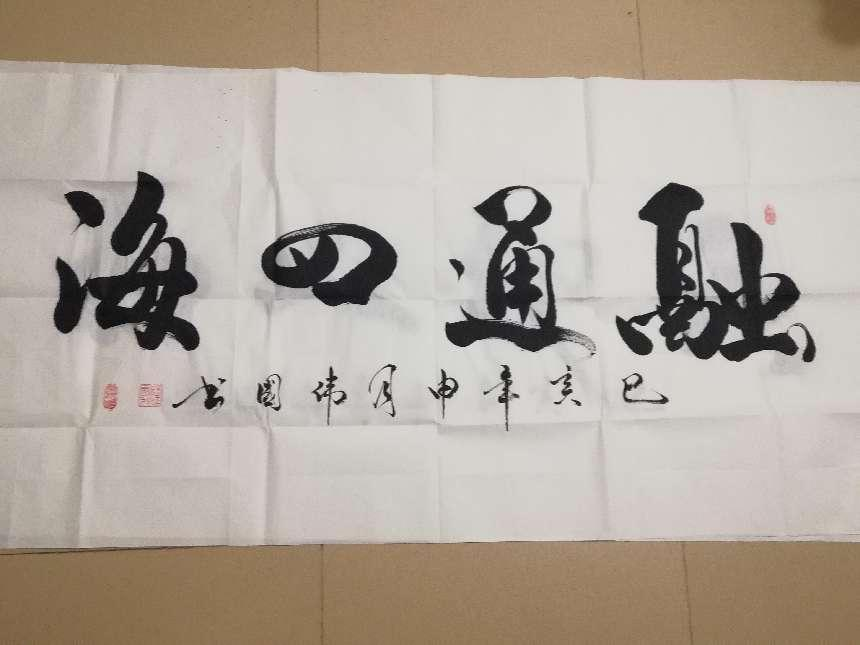 融通四海
己亥年申月伟国书